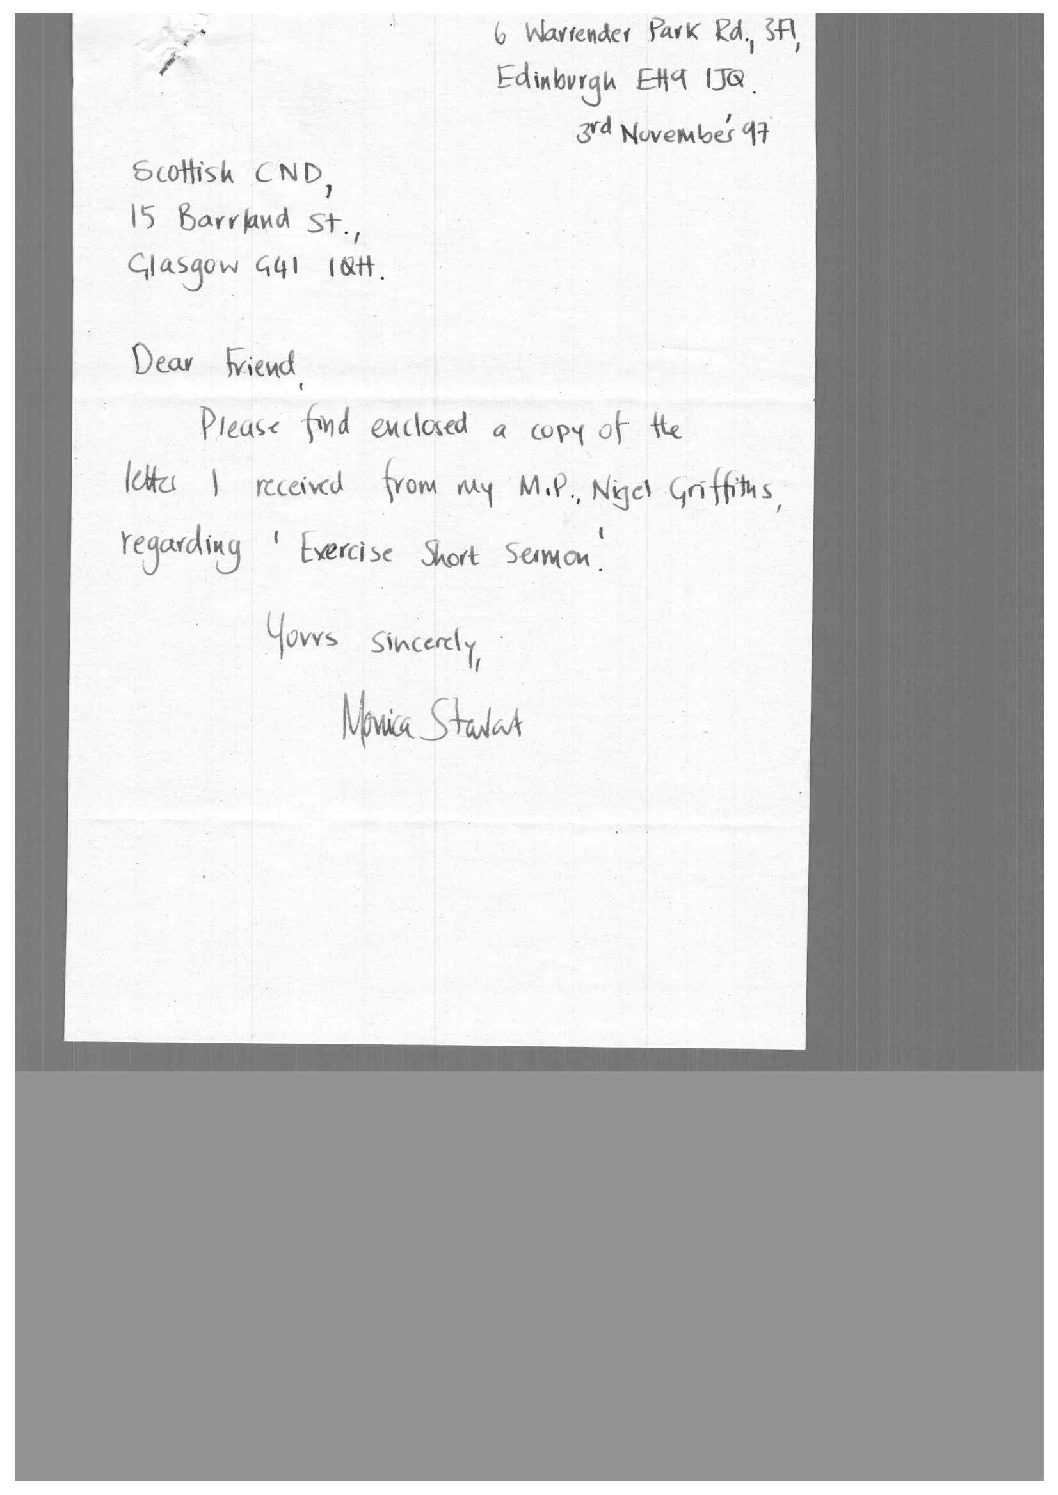 6 Warrender Park Rd., 3Fl,
Edinburgh EH9 1JQ.
3rd November '97
Scottish CND,
15 Barrland St.,
Glasgow G41 1QH.
Dear Friend,
Please find enclosed a copy of the
letter I received from my M.P., Nigel Griffiths,
regarding 'Exercise Short Sermon'.
Yours sincerely,
Monica Stewart